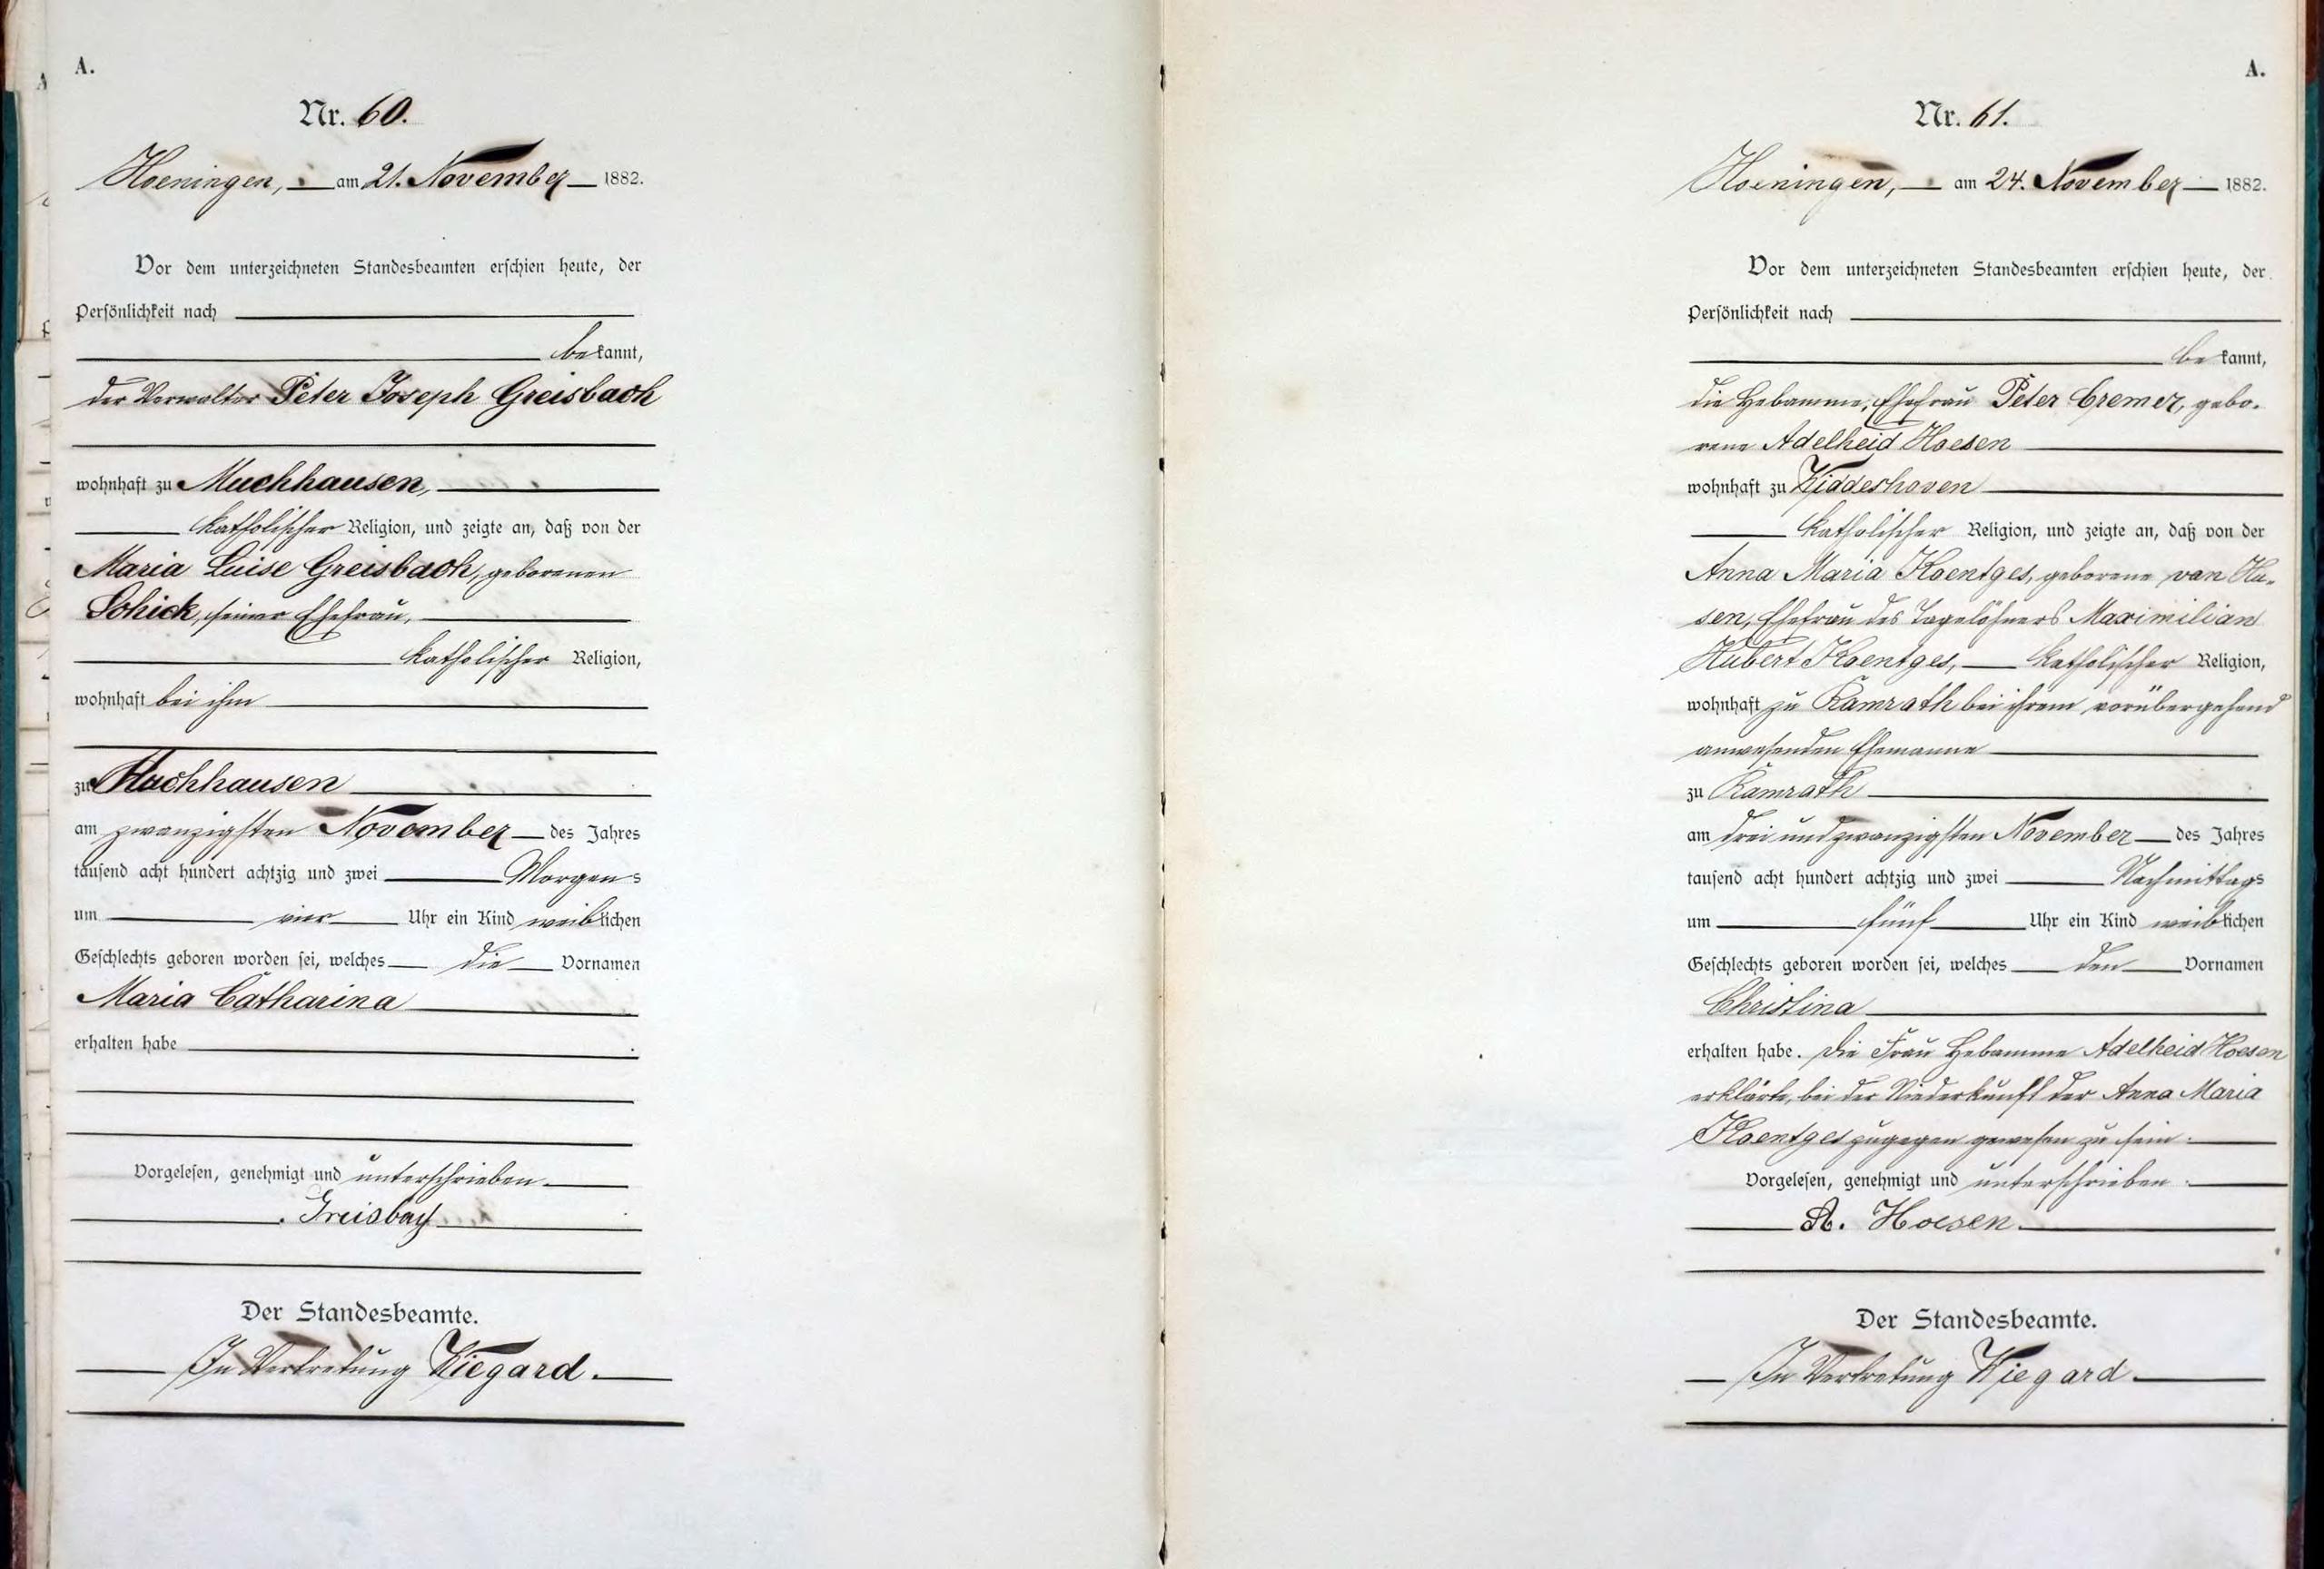 A.
Nr. 60.
Hoeningen, am 21. November 1882.
Vor dem unterzeichneten Standesbeamten erschien heute, der
Persönlichkeit nach
bekannt,
der Verwalter Peter Joseph Greisbach
wohnhaft zu Muchhausen,
katholischer Religion, und zeigte an, daß von der
Maria Luise Greisbach, geborenen
Schick, seiner Ehefrau,
katholischer Religion,
wohnhaft bei ihm
zu Muchhausen
am zwanzigsten November des Jahres
tausend acht hundert achtzig und zwei Morgens
um vier Uhr ein Kind weiblichen
Geschlechts geboren worden sei, welches die Vornamen
Maria Catharina
erhalten habe
Vorgelesen, genehmigt und unterschrieben.
Greisbach
Der Standesbeamte.
In Vertretung Wiegard.
A.
Nr. 61.
Hoeningen, am 24. November 1882.
Vor dem unterzeichneten Standesbeamten erschien heute, der
Persönlichkeit nach
bekannt,
die Hebamme, Ehefrau Peter Cremer, gebo-
rene Adelheid Hoesen
wohnhaft zu Widdeshoven
katholischer Religion, und zeigte an, daß von der
Anna Maria Koentges, geborene van Hu-
sen, Ehefrau des Tagelöhners Maximilian
Hubert Koentges, katholischer Religion,
wohnhaft zu Ramrath bei ihrem vorübergehend
anwesenden Ehemanne
zu Ramrath
am drei und zwanzigsten November des Jahres
tausend acht hundert achtzig und zwei Nachmittags
um fünf Uhr ein Kind weiblichen
Geschlechts geboren worden sei, welches den Vornamen
Christina
erhalten habe. Die Frau Hebamme Adelheid Hoesen
erklärte, bei der Niederkunft der Anna Maria
Koentges zugegen gewesen zu sein.
Vorgelesen, genehmigt und unterschrieben.
A. Hoesen.
Der Standesbeamte.
In Vertretung Wiegard.